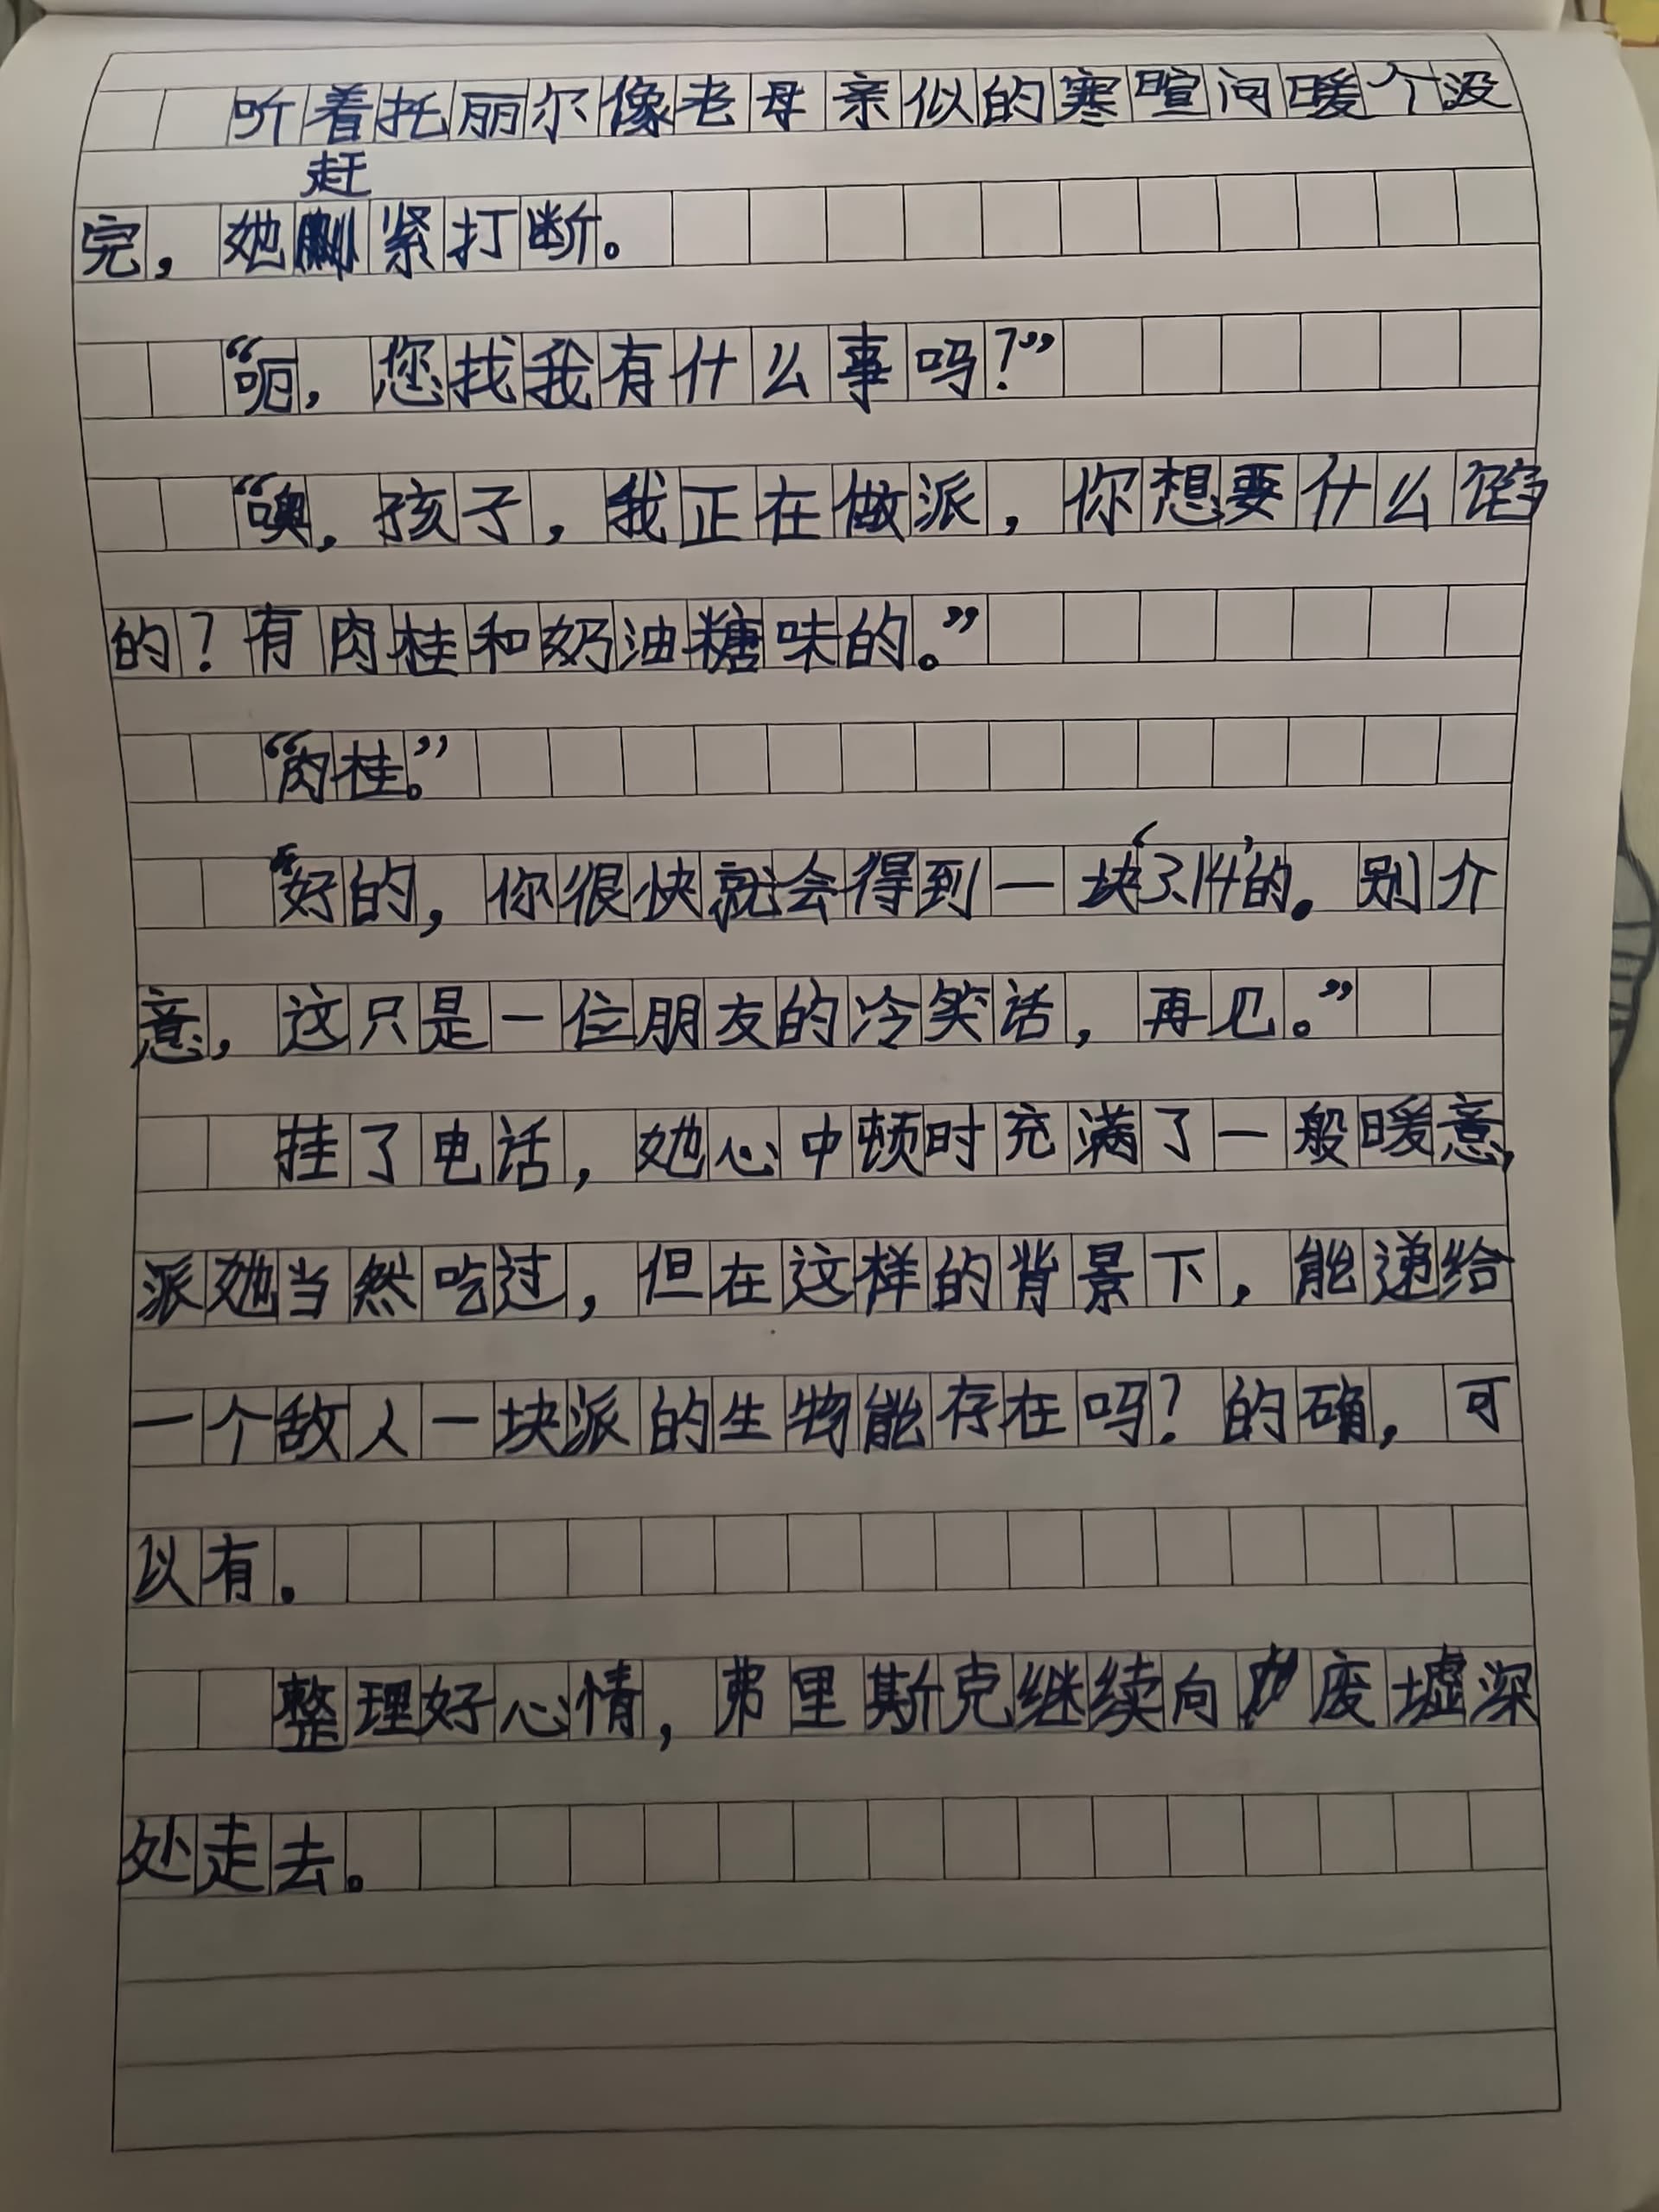 听着托丽尔像老母亲似的寒暄问暖个没
赶
完，她紧打断。
“呃，您找我有什么事吗？”
“噢，孩子，我正在做派，你想要什么馅
的？有肉桂和奶油糖味的。”
“肉桂。”
“好的，你很快就会得到一块‘3.14’的。别介
意，这只是一位朋友的冷笑话，再见。”
挂了电话，她心中顿时充满了一般暖意，
派她当然吃过，但在这样的背景下，能递给
一个敌人一块派的生物能存在吗？的确，可
以有。
整理好心情，弗里斯克继续向废墟深
处走去。